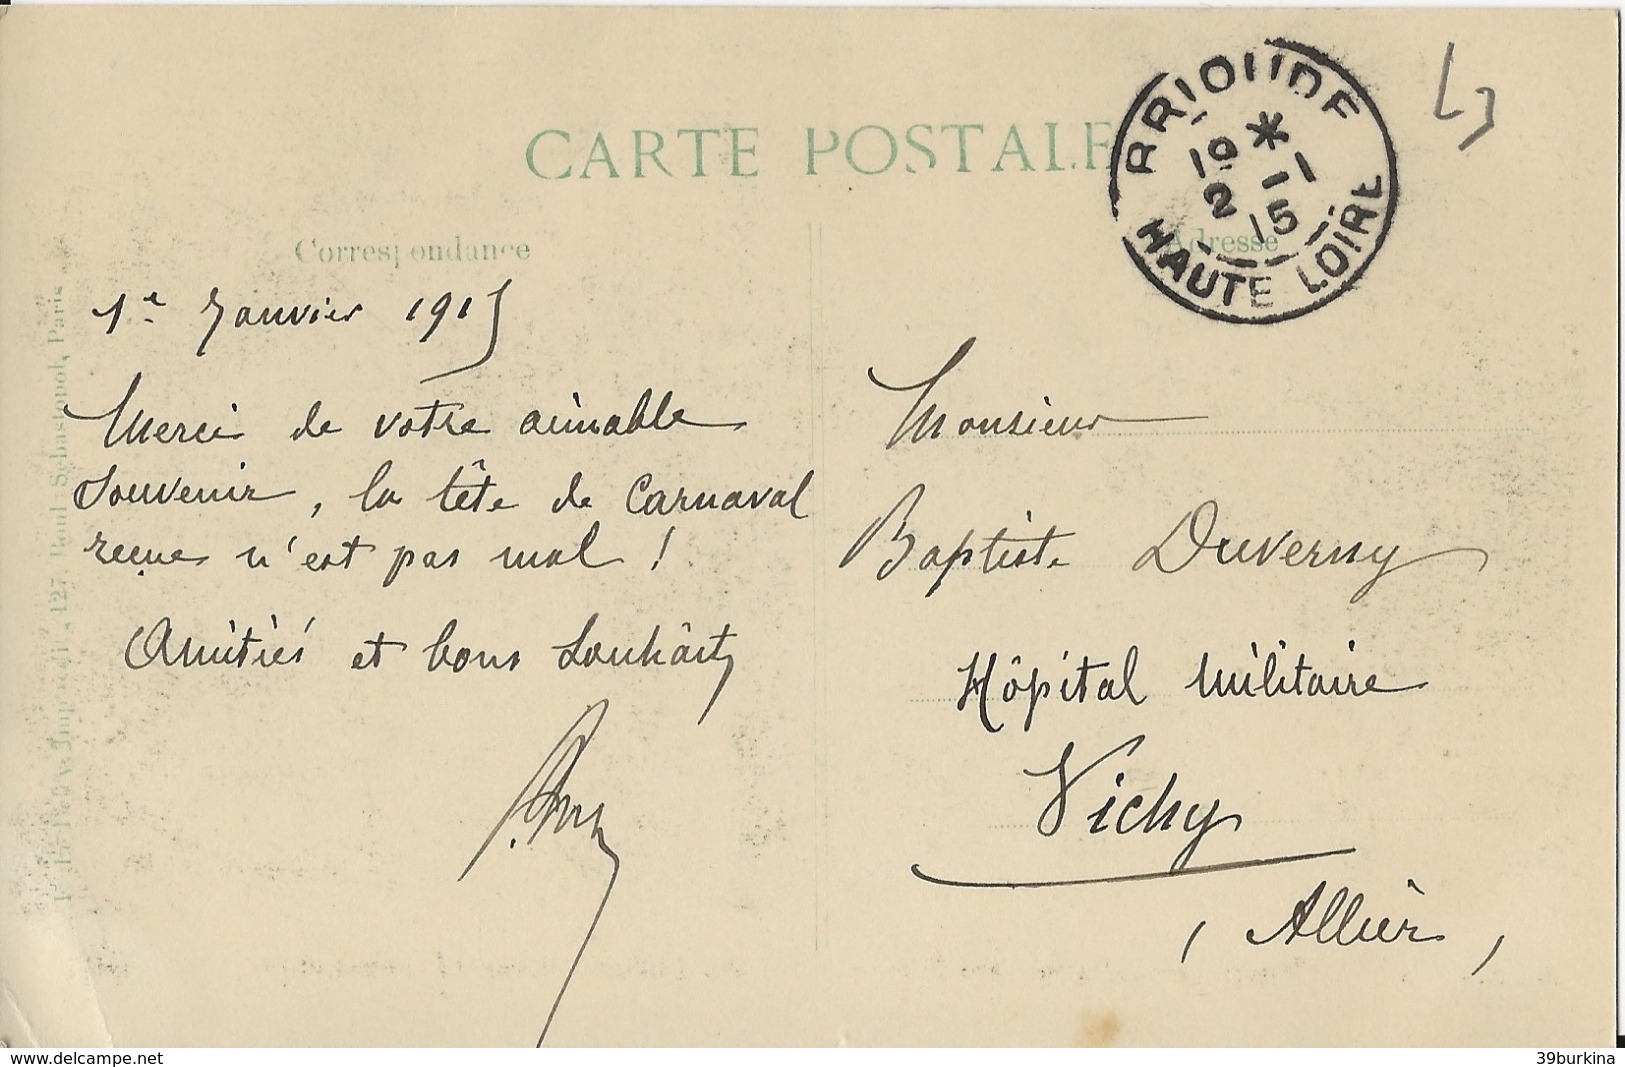 CARTE POSTALE
Correspondance
1e Janvier 1915
Merci de votre aimable
Souvenir, la tête de Carnaval
reçue n'est pas mal !
Amitiés et bons Souhaits
BRIOUDE
19 * 1-1
2 15
HAUTE LOIRE
Adresse
Monsieur
Baptiste Duverny
Hôpital militaire
Vichy
(Allier)
127, Boul. Sébastopol, Paris
www.delcampe.net
39burkina